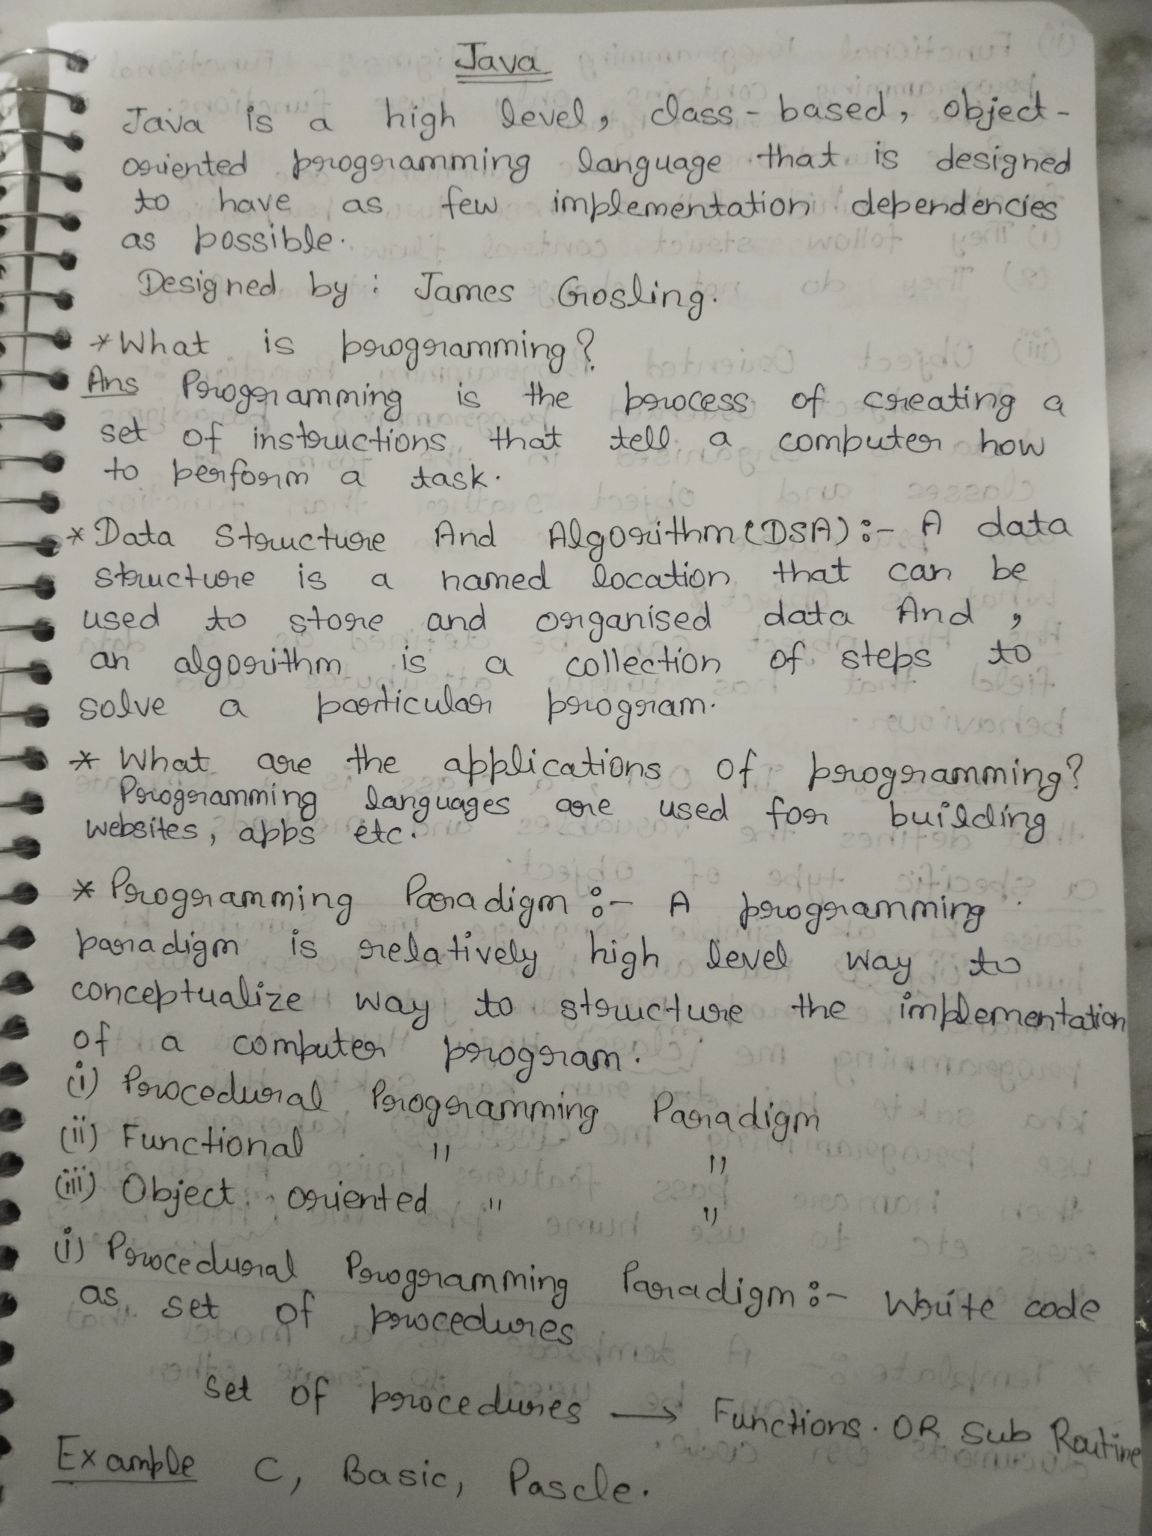 Java
Java is a high level, class-based, object-
oriented programming language that is designed
to have as few implementation dependencies
as possible.
Designed by : James Gosling.
* What is programming?
Ans Programming is the process of creating a
set of instructions that tell a computer how
to perform a task.
* Data Structure And Algorithm (DSA) :- A data
structure is a named location that can be
used to store and organised data And ,
an algorithm is a collection of steps to
solve a particular program.
* What are the applications of programming?
Programming languages are used for building
websites, apps etc.
* Programming Paradigm :- A programming
paradigm is relatively high level way to
conceptualize way to structure the implementation
of a computer program.
(i) Procedural Programming Paradigm
(ii) Functional " "
(iii) Object oriented " "
(i) Procedural Programming Paradigm :- Write code
as set of procedures
Set of procedures → Functions. OR Sub Routine
Example C, Basic, Pascle.